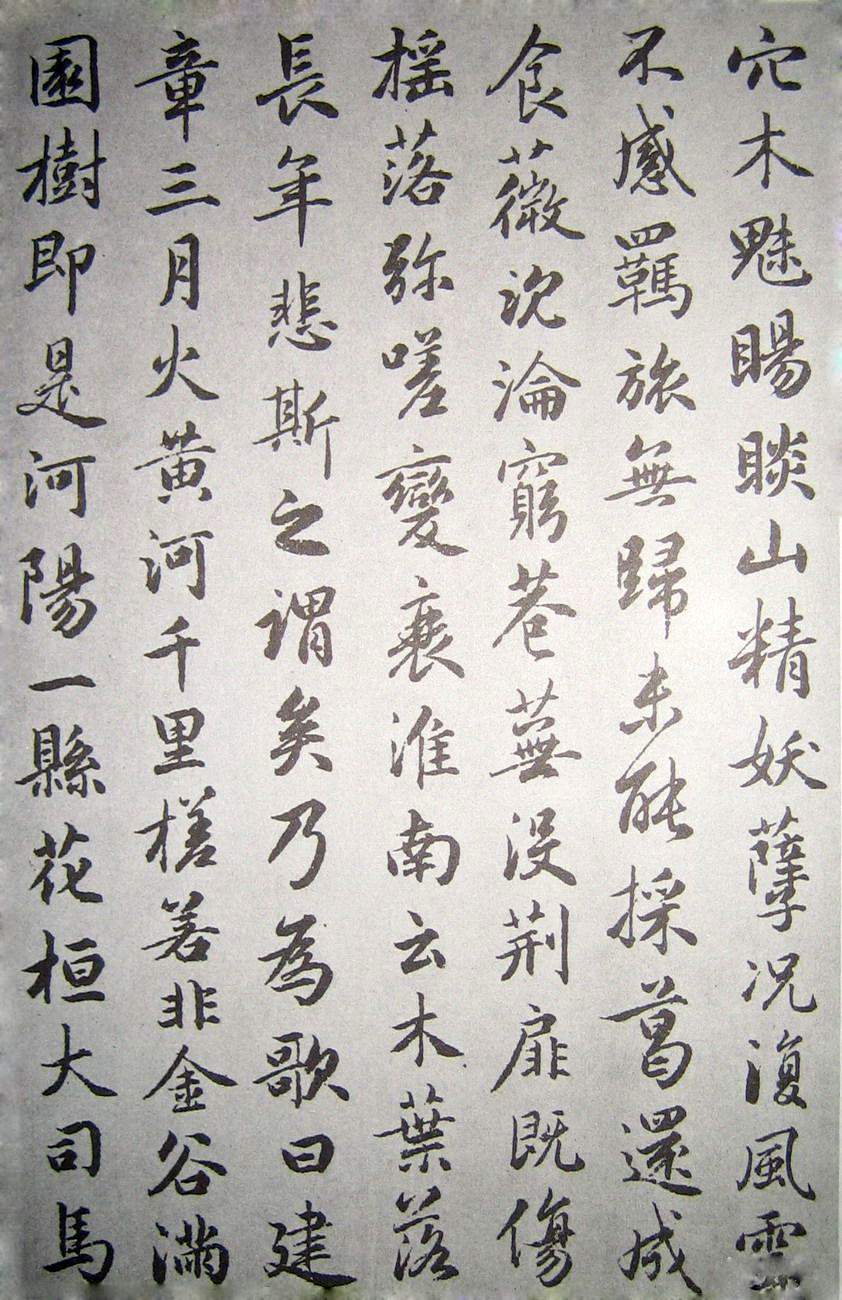 穴木魅睗睒山精妖孽况復風雲
不感羈旅無歸未能採葛還成
食薇沉淪窮巷蕪没荆扉既傷
摇落弥嗟變衰淮南云木葉落
長年悲斯之謂矣乃為歌曰建
章三月火黄河千里槎若非金谷滿
園樹即是河陽一縣花桓大司馬